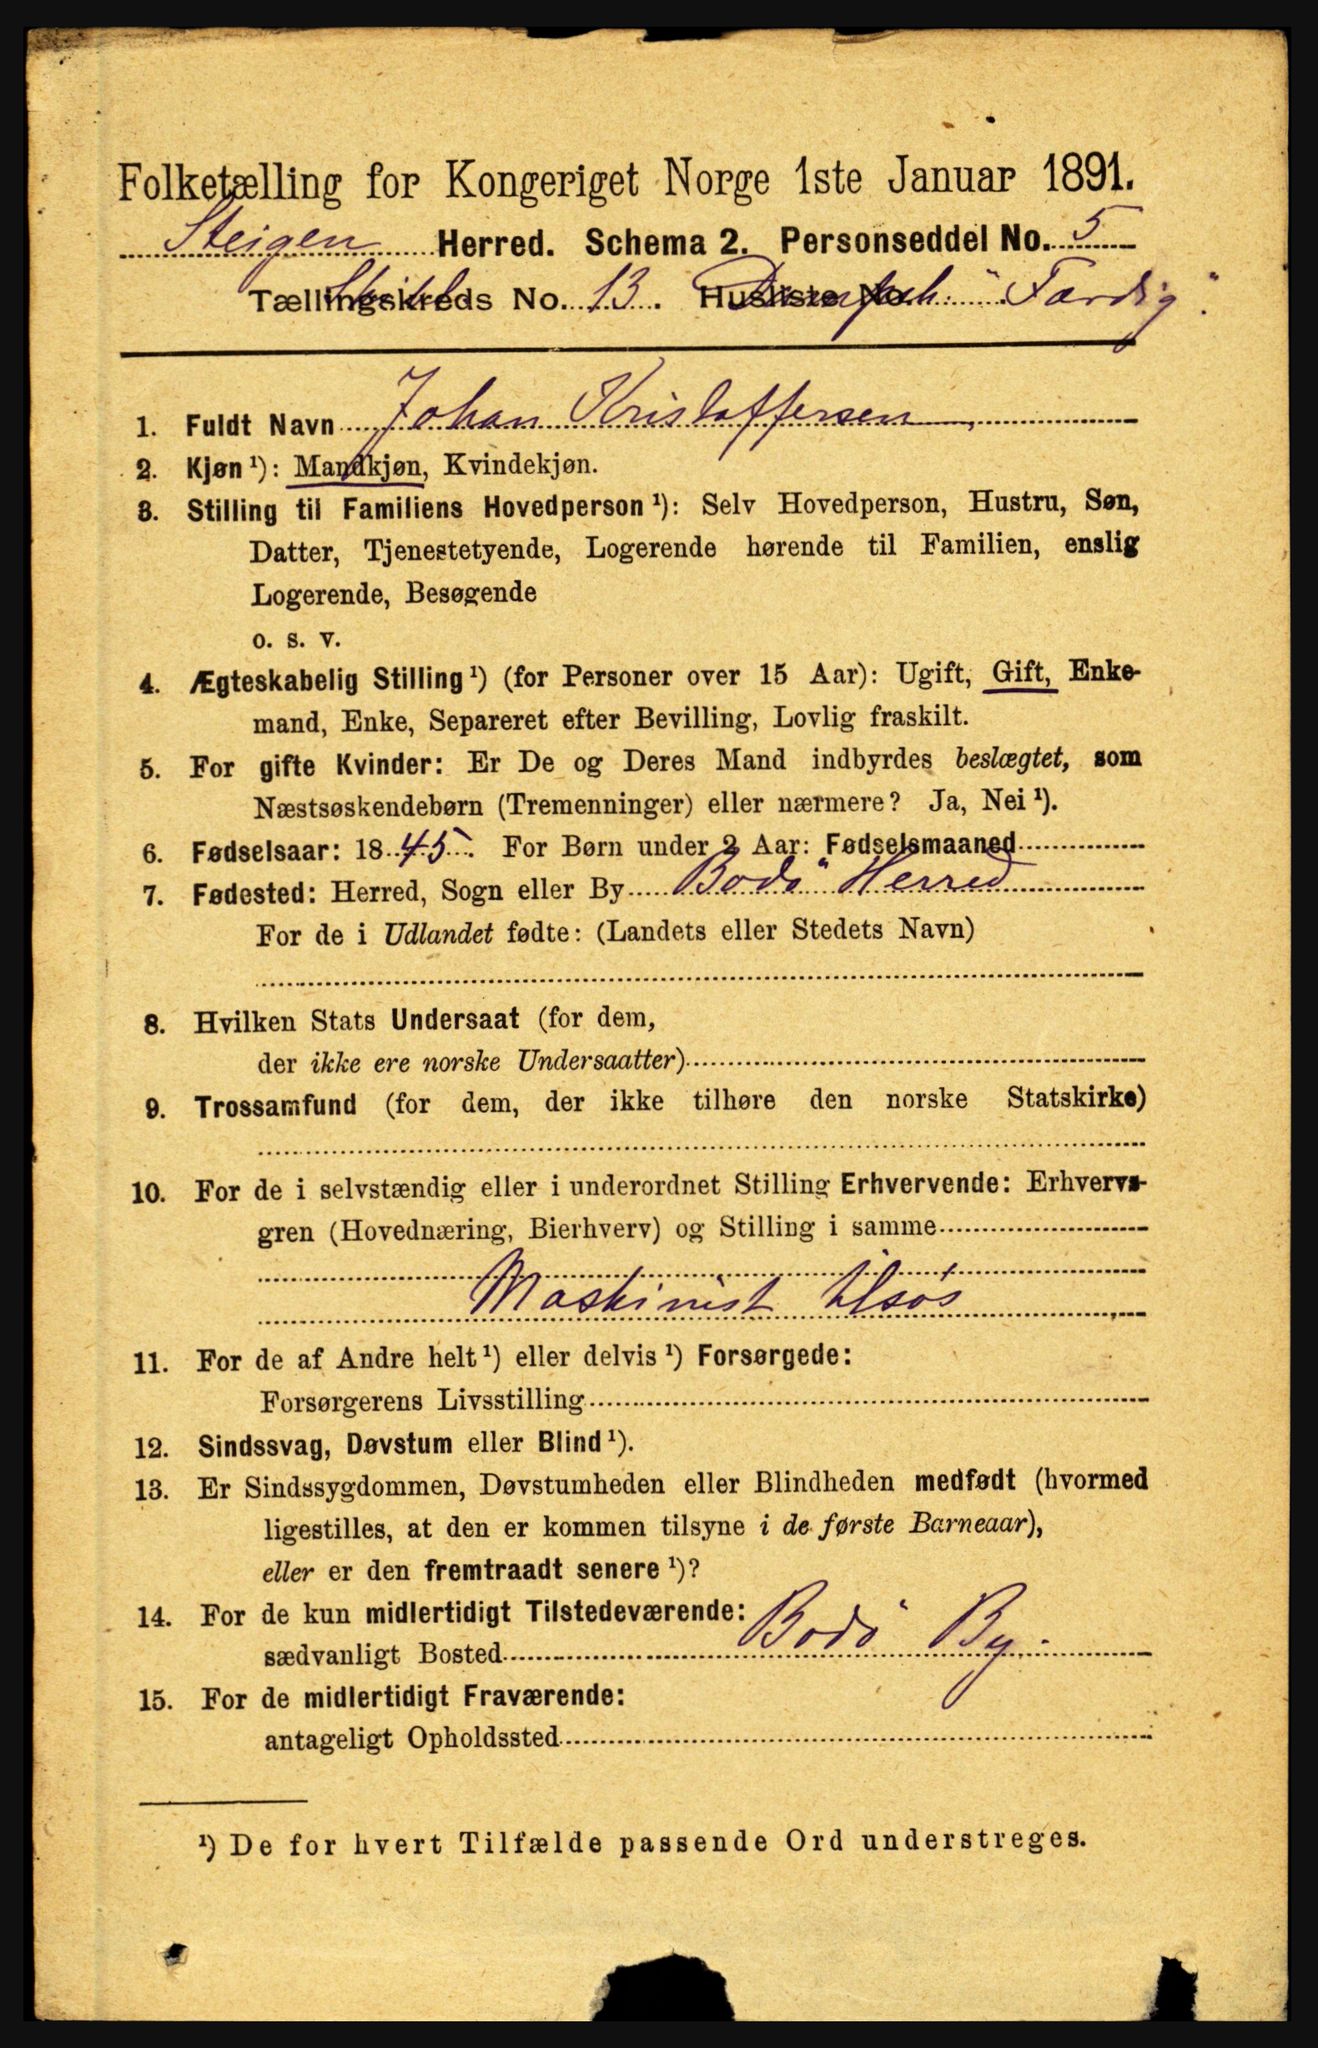 Folketælling for Kongeriget Norge 1ste Januar 1891.
Steigen Herred. Schema 2. Personseddel No. 5
Tællingskreds No. 13. Husliste No. "Færdig".
1. Fuldt Navn Johan Kristoffersen
2. Kjøn ¹): Mandkjøn, Kvindekjøn.
3. Stilling til Familiens Hovedperson ¹): Selv Hovedperson, Hustru, Søn,
Datter, Tjenestetyende, Logerende hørende til Familien, enslig
Logerende, Besøgende
o. s. v.
4. Ægteskabelig Stilling ¹) (for Personer over 15 Aar): Ugift, Gift, Enke-
mand, Enke, Separeret efter Bevilling, Lovlig fraskilt.
5. For gifte Kvinder: Er De og Deres Mand indbyrdes beslægtet, som
Næstsøskendebørn (Tremenninger) eller nærmere? Ja, Nei ¹).
6. Fødselsaar: 1845. For Børn under 2 Aar: Fødselsmaaned
7. Fødested: Herred, Sogn eller By Bodö Herred
For de i Udlandet fødte: (Landets eller Stedets Navn)
8. Hvilken Stats Undersaat (for dem,
der ikke ere norske Undersaatter)
9. Trossamfund (for dem, der ikke tilhøre den norske Statskirke)
10. For de i selvstændig eller i underordnet Stilling Erhvervende: Erhvervs-
gren (Hovednæring, Bierhverv) og Stilling i samme
Maskinist tilsös
11. For de af Andre helt ¹) eller delvis ¹) Forsørgede:
Forsørgerens Livsstilling
12. Sindssvag, Døvstum eller Blind ¹).
13. Er Sindssygdommen, Døvstumheden eller Blindheden medfødt (hvormed
ligestilles, at den er kommen tilsyne i de første Barneaar),
eller er den fremtraadt senere ¹)?
14. For de kun midlertidigt Tilstedeværende:
sædvanligt Bosted Bodö By.
15. For de midlertidigt Fraværende:
antageligt Opholdssted
¹) De for hvert Tilfælde passende Ord understreges.